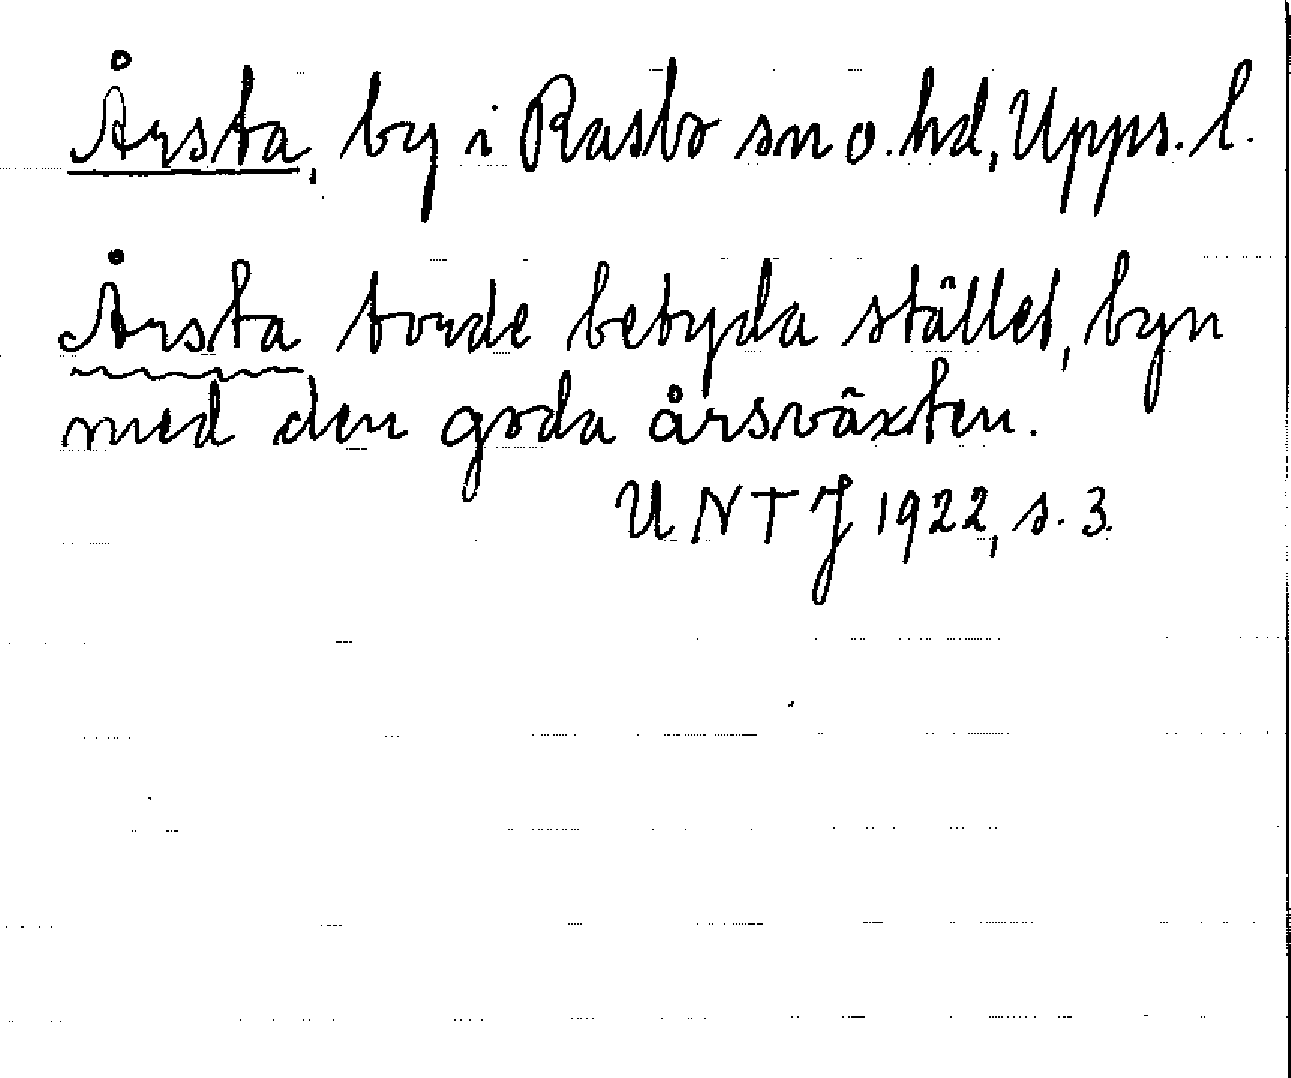 Årsta, by i Rasbo sn o. hd, Upps. l.
Årsta torde betyda stället, byn
med den goda årsväxten.
UNTJ 1922, s. 3.